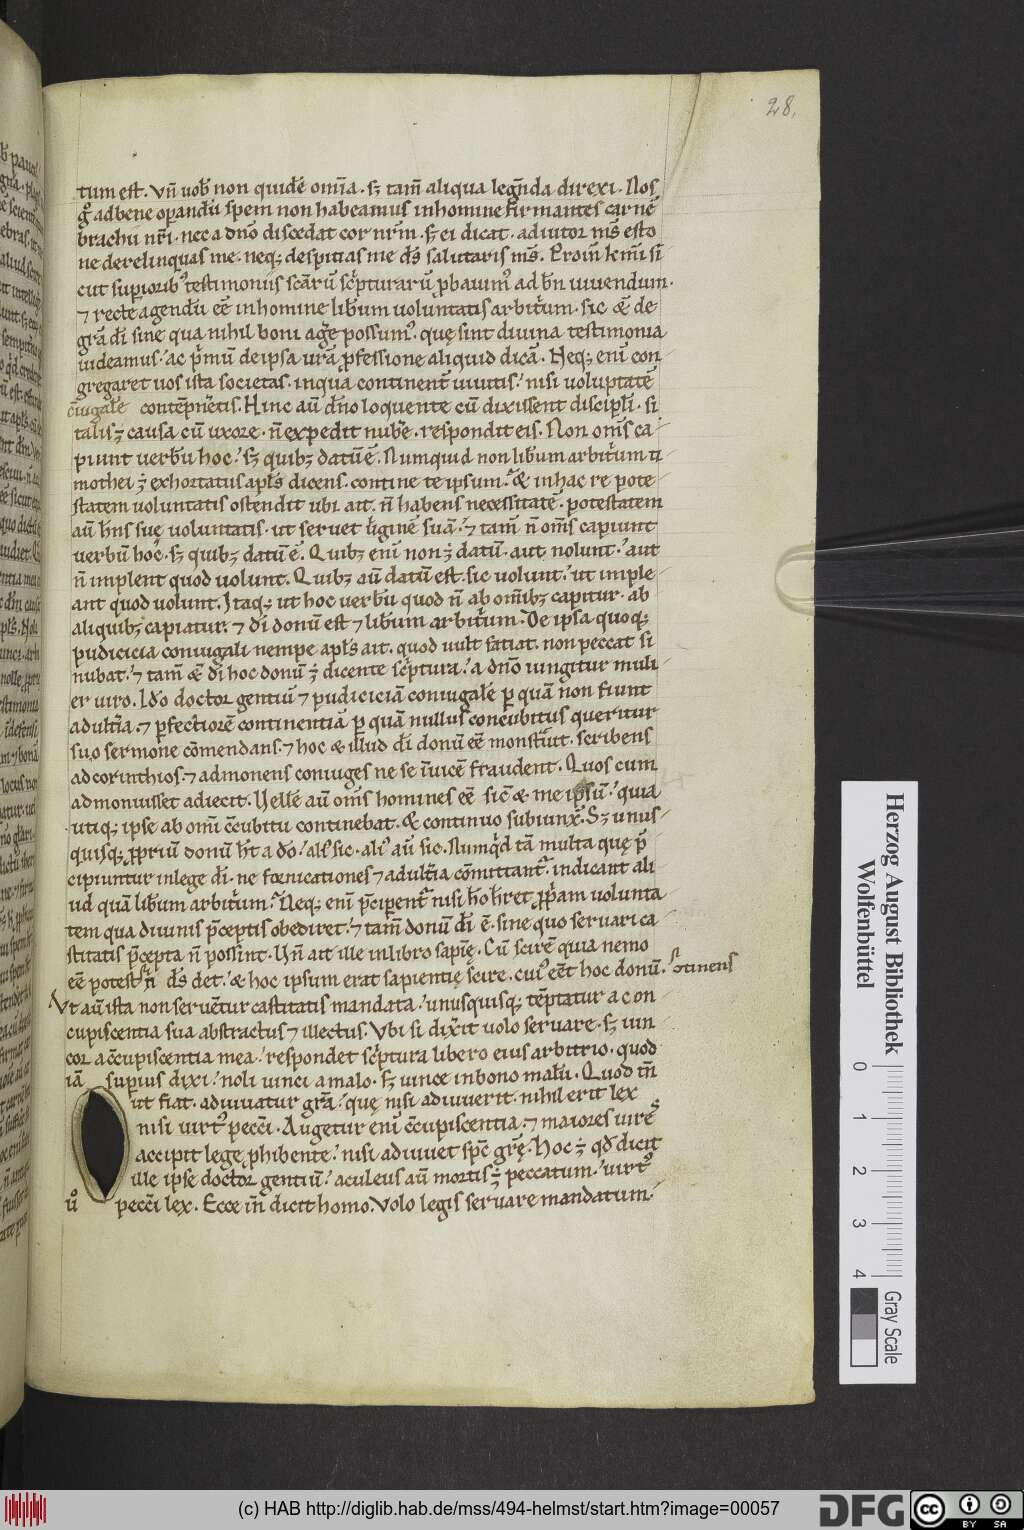 28.
tum est. Vn̄ uob̄ non quidē om̄ia. sꝫ tam̄ aliqua legn̄da direxi. Nos
g̊ ad bene oꝑandū spem non habeamus in homine firmantes carnē
brachii nr̄i. nec a dn̄o discedat cor nr̄m. sꝫ ei dicat. adiutor ms̄ esto
ne derelinquas me. neqꝫ despitias me ds̄ salutaris ms̄.
cut suꝑioribꝰ testimoniis scārū sc̄pturarū ꝓbauimꝰ ad bn̄ uiuendum.
⁊ recte agendū eē in homine lib̄um uoluntatis arbit̄um. sic & de
gr̄a di sine qua nihil boni aḡe possumꝰ. quę sint diuina testimonia
uideamus. ac p̄mū de ipsa ur̄a ꝓfessione aliquid dicā. Neqꝫ enī con
gregaret uos ista societas. in qua continent̄ uiuitis. nisi uoluptatē
c̄iugalē contēpn̄etis. Hinc aū dn̄o loquente cū dixissent discipl̄i. si
talis ÷ causa cū uxore. n̄ expedit nub̄e. respondit eis. Non om̄s ca
piunt uerbū hoc. sꝫ quibꝫ datū ē. Numquid non lib̄um arbit̄um ti
mothei ÷ exhortatus apl̄s dicens. contine te ipsum. & in hac re pote
statem uoluntatis ostendit ubi ait. n̄ habens necessitatē. potestatem
aū hn̄s suę uoluntatis. ut seruet ūginē suā. ⁊ tam̄ n̄ om̄s capiunt
uerbū hoc. sꝫ quibꝫ datū ē. Quibꝫ enī non ÷ datū. aut nolunt. aut
n̄ implent quod uolunt. Quibꝫ aū datū est. sic uolunt. ut imple
ant quod uolunt. Itaqꝫ ut hoc uerbū quod n̄ ab om̄ibꝫ capitur. ab
aliquibꝫ capiatur. ⁊ di donū est ⁊ lib̄um arbit̄um. De ipsa quoqꝫ
pudicicia coniugali nempe apl̄s ait. quod uult faciat. non peccat si
nubat. ⁊ tam̄ & di hoc donū ÷ dicente sc̄ptura. a dn̄o iungitur muli
er uiro. Ido doctor gentiū ⁊ pudiciciā coniugalē ꝑ quā non fiunt
adult̄ia. ⁊ ꝑfectiorē continentiā ꝑ quā nullus concubitus queritur
suo sermone cōmendans. ⁊ hoc & illud di donū eē monst̄uit. scribens
ad corinthios. ⁊ admonens coniuges ne se īuicē fraudent. Quos cum
admonuisset adiecit. Vellē aū om̄s homines eē sic̄ & me ipsū. quia
utiqꝫ ipse ab om̄i c̄cubitu continebat. & continuo subiunx̄. Sꝫ unus
quisqꝫ ꝓpriū donū h̄t a do. al̄s sic. aliꝰ aū sic. Numq̇d tā multa quę p̄
cipiuntur in lege di. ne fornicationes ⁊ adult̄ia cōmittant̄. indicant ali
ud quā lib̄um arbit̄um. Neqꝫ enī p̄ciꝑent̄ nisi hō h̄ret ꝓp̄am uolunta
tem qua diuinis p̄ceptis obediret. ⁊ tam̄ donū di ē. sine quo seruari ca
stitatis p̄cepta n̄ possint. Vn̄ ait ille in libro sapīę. Cū scirē quia nemo
eē potest n̄ ds̄ det. & hoc ipsum erat sapientię scire. cuiꝰ eēt hoc donū. c̄tinens
Vt aū ista non seruētur castitatis mandata. unusquisqꝫ tēptatur a con
cupiscentia sua abstractus ⁊ illectus. Vbi si dix̄it uolo seruare. sꝫ uin
cor a c̄cupiscentia mea. respondet sc̄ptura libero eius arbitrio. quod
iā superius dixi. noli uinci a malo. sꝫ uince in bono malū. Quod tn̄
ut fiat. adiuuatur gr̄a. quę nisi adiuuerit. nihil erit lex
nisi uirtꝰ pecc̄i. Augetur enī c̄cupiscentia. ⁊ maiores uires
accipit lege ꝓhibente. nisi adiuuet spc̄ gr̄ę. Hoc ÷ qd̄ dicit
ille ipse doctor gentiū. aculeus aū mortis ÷ peccatum. uirtꝰ
ů pecc̄i lex. Ecce in̄ dicit homo. Volo legis seruare mandatum.
Herzog August Bibliothek
Wolfenbüttel
0 1 2 3 4
Gray Scale
(c) HAB http://diglib.hab.de/mss/494-helmst/start.htm?image=00057
DFG
cc BY SA